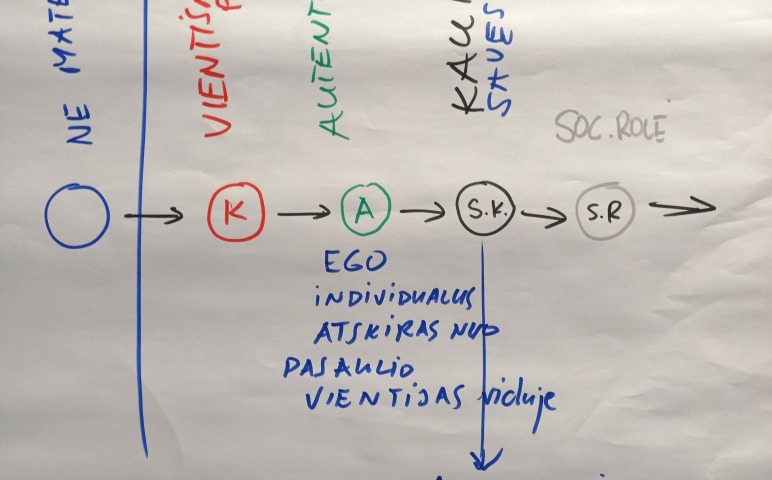 NE MATE
VIENTIS
AUTENT
KAU
SAVES
SOC. ROLĖ
K
A
S.K.
S.R
EGO
INDIVIDUALUS
ATSKIRAS NUO
PASAULIO
VIENTISAS viduje